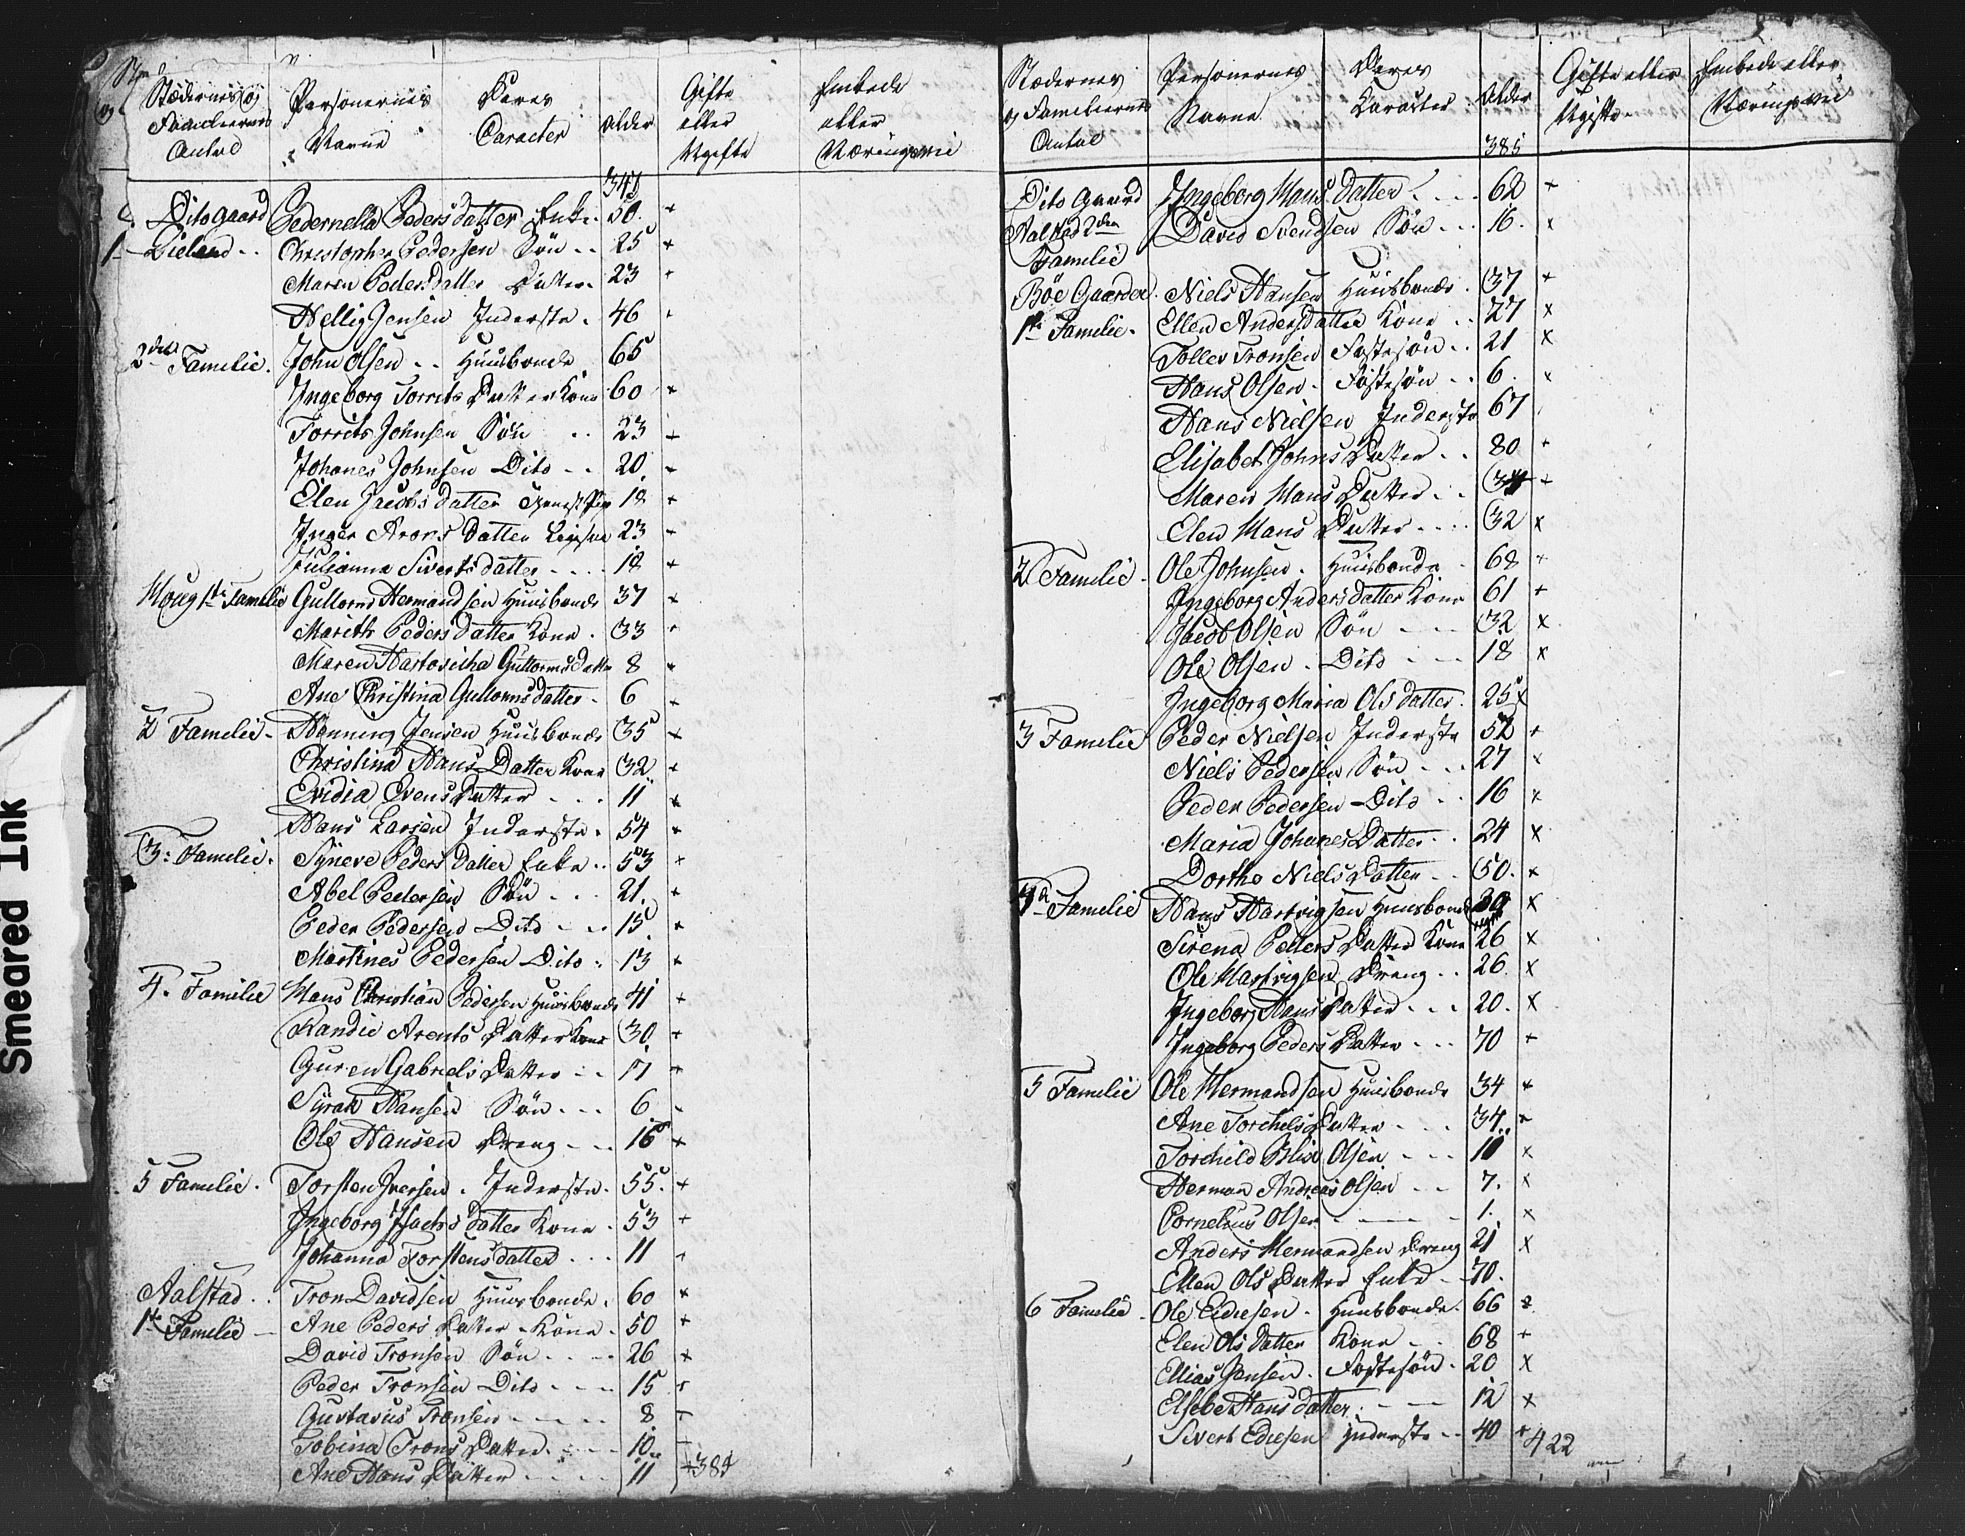 Stædernes og
Familiernes
Antal
Personernes
Navne
Deres
Caracter
Alder
Gifte
eller
Ugifte
Embede
eller
Næringsvei
347
Dito gaard Pedernella Peders Datter Enke 50 +
1 Lieland Christopher Pedersen Søn 25 +
Maren Peders Datter Datter 23 +
Hellig Jensen Inderste 46
2den Familie John Olsen Huusbonde 65
Ingeborg Torrits Datter Kone 60 +
Torrits Johnsen Søn 23 +
Johanes Johnsen Dito 20 +
Elen Jacobs Datter 18 +
Inger Arons Datter 23 +
Julianna Siverts datter 18 +
Houg 1te Familie Guttorm Hermandsen Huusbonde 37 +
Marith Peders Datter Kone 33
Maren Guttorms Datter 8 +
Ane Christina Guttorms datter 6 +
2 Familie Henning Jensen Huusbonde 35 +
Christina Hans Datter Kone 32 +
Evidia Evens Datter 11 +
Hans Larsen Inderste 54 +
3: Familie Syneve Peders Datter Enke 53 +
Abel Pedersen Søn 21 +
Peder Pedersen Dito 15 +
Martines Pedersen Dito 13 +
4. Familie Hans Christian Pedersen Huusbonde 41 +
Randie Arents Datter Kone 30 +
Guren Gabriels Datter 17 +
Syrak Hansen Søn 6
Ole Hansen Dreng 16 +
5 Familie Torsten Iversen Inderste 55 +
Ingeborg Isachs datter Kone 53 +
Johanna Torstens datter 11
Aalstad Tron Davidsen Huusbonde 60 +
1te Familie Ane Peders Datter Kone 50 +
David Tronsen Søn 26 +
Peder Tronsen Dito 15
Gustavus Tronsen 8
Tobina Trons Datter 10
Ane Hans Datter 11 + 385
Stædernes
og Familiernes
Antal
Personernes
Navne
Deres
Karacter
Alder
Gifte eller
Ugifte
Embede eller
Næringsvei
385
Dito Gaard Ingeborg Hans Datter 62 +
Aalstad 2den David Svendsen Søn 16 x
Familie
Böe Gaarder Niels Hansen Huusbonde 37 +
1te Familie Ellen Andersdatter Kone 27 x
Toller Tronsen Fostesøn 21 x
Hans Olsen Fostesøn 6 x
Hans Nielsen Inderste 67
Elisabet Johns Datter 80 +
Maren Hans Datter +
Elen Hans Datter 32 x
2 Familie Ole Johnsen Huusbonde 68 +
Ingeborg Anders datter Kone 61 +
Jacob Olsen Søn 32 x
Ole Olsen Dito 18 x
Ingeborg Maria Ols datter 25 x
3 Familie Peder Nielsen Inderste 52 +
Niels Pedersen Søn 27 x
Peder Pedersen Dito 16 x
Maria Johanes Datter 24 x
Dorthe Niels Datter 50 x
4de Familie Hans Hartvigsen Huusbonde 30 x
Sirena Peders Datter Kone 26 x
Ole Hartvigsen Dreng 26 x
Ingeborg Hans Datter 20 x
Ingeborg Peders Datter 70 +
5 Familie Ole Hermandsen Huusbonde 34 +
Ane Torchels Datter 34 +
Torchild Blix Olsen 11 x
Herman Andreas Olsen 7 x
Cornelius Olsen 1 x
Anders Hermandsen Dreng 21 x
Ellen Ols Datter Enke 70
6 Familie Ole Ediesen Huusbonde 66 +
Elen Ols Datter Kone 68 +
Ellias Jensen Fostesøn 20 x
Elsebe Hans datter 12 x
Sivert Ediesen Inderste 40 + 422
Smeared Ink